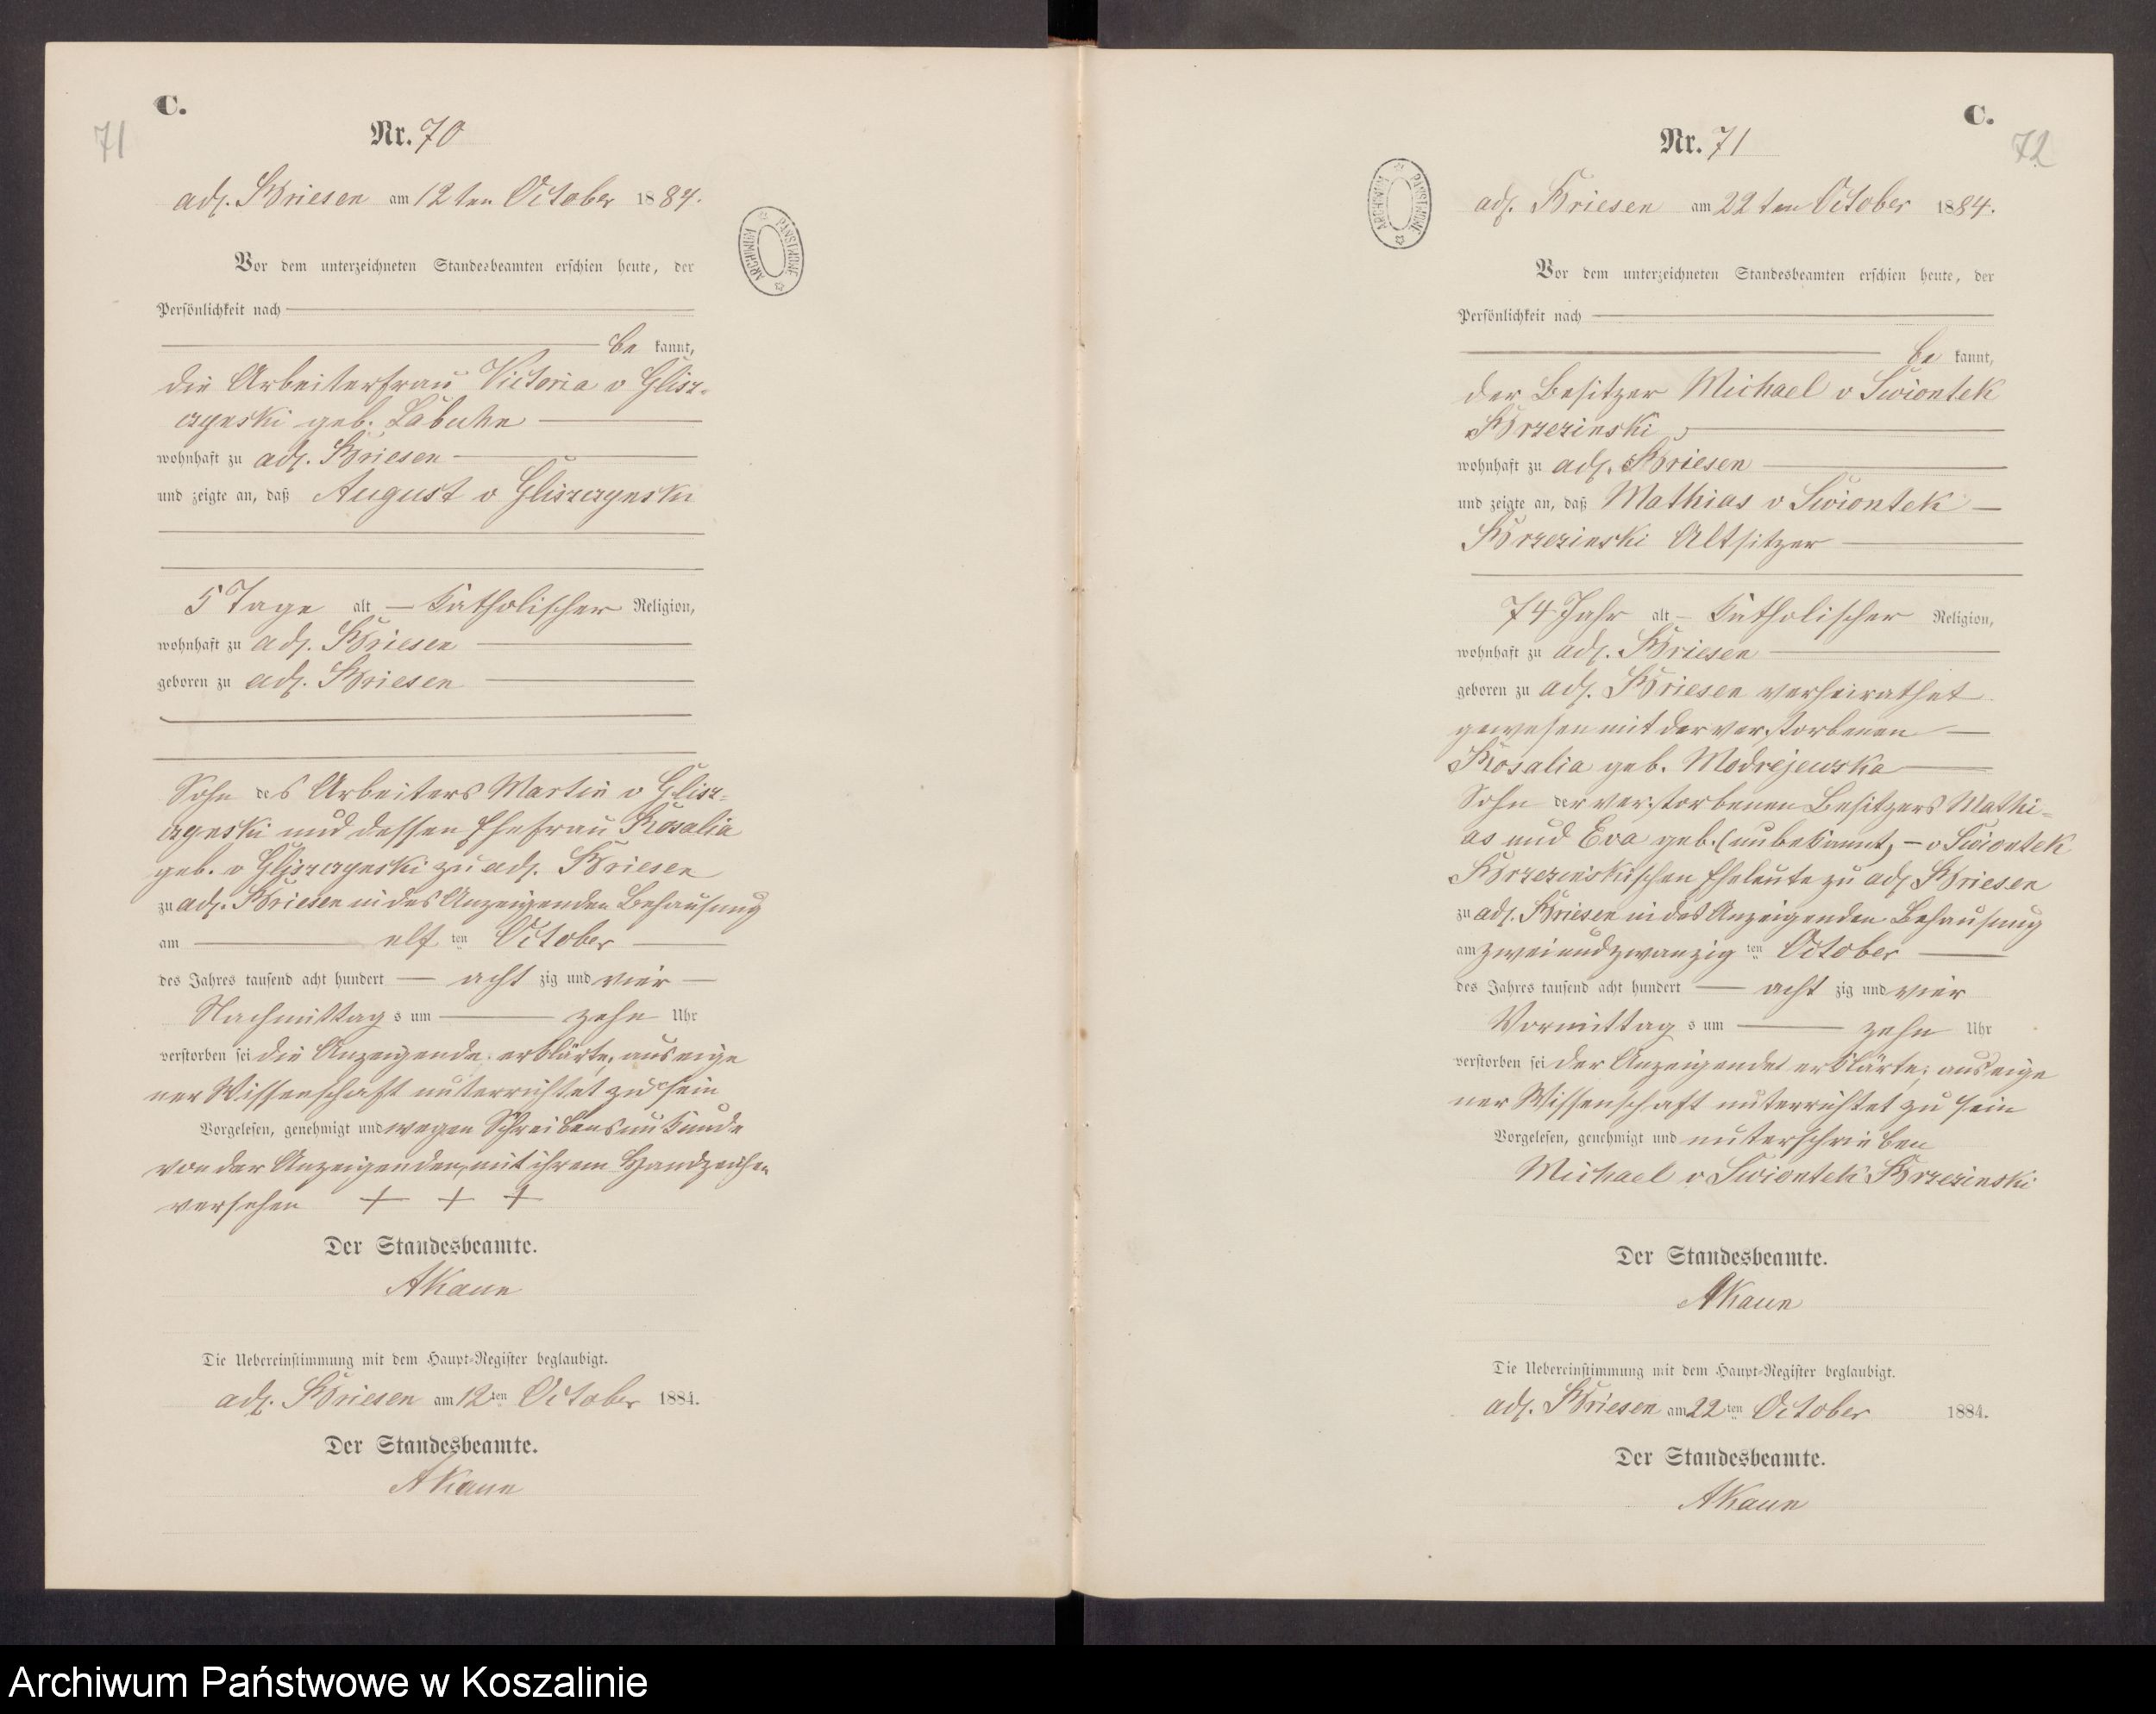 C.
71
Nr. 70
adl. Briesen am 12 ten October 1884.
ARCHIWUM PAŃSTWOWE
Vor dem unterzeichneten Standesbeamten erschien heute, der
Persönlichkeit nach
be kannt,
die Arbeiterfrau Victoria v Glisz-
czynski geb. Labuhn
wohnhaft zu adl. Briesen
und zeigte an, daß August v Gliszczynski
5 Tage alt – Katholischer Religion,
wohnhaft zu adl. Briesen
geboren zu adl. Briesen
Sohn des Arbeiters Martin v Glisz-
czynski und dessen Ehefrau Rosalia
geb. v Gliszczynski zu adl. Briesen
zu adl. Briesen in des Anzeigenden Behausung
am elf ten October
des Jahres tausend acht hundert acht zig und vier
Nachmittag s um zehn Uhr
verstorben sei die Anzeigende erklärte, aus eige
ner Wissenschaft unterrichtet zu sein
Vorgelesen, genehmigt und wegen Schreibensunkunde
von der Anzeigenden, mit ihrem Handzeichen
versehen + + +
Der Standesbeamte.
AKaun
Die Uebereinstimmung mit dem Haupt-Register beglaubigt.
adl. Briesen am 12 ten October 1884.
Der Standesbeamte.
AKaun
C.
72
Nr. 71
adl. Briesen am 22 ten October 1884.
ARCHIWUM PAŃSTWOWE
Vor dem unterzeichneten Standesbeamten erschien heute, der
Persönlichkeit nach
be kannt,
der Besitzer Michael v Swiontek
Brzezinski,
wohnhaft zu adl. Briesen
und zeigte an, daß Mathias v Swiontek –
Brzezinski Altsitzer
74 Jahr alt – Katholischer Religion,
wohnhaft zu adl. Briesen
geboren zu adl. Briesen verheirathet
gewesen mit der verstorbenen
Rosalia geb. Modrejewska
Sohn der verstorbenen Besitzers Mathi-
as und Eva geb. (unbekannt) – v Swiontek
Brzezinskischen Eheleute zu adl Briesen
zu adl. Briesen in des Anzeigenden Behausung
am zweiundzwanzig ten October
des Jahres tausend acht hundert acht zig und vier
Vormittag s um zehn Uhr
verstorben sei der Anzeigende erklärte, aus eige
ner Wissenschaft unterrichtet zu sein
Vorgelesen, genehmigt und unterschrieben
Michael v Swiontek Brzezinski
Der Standesbeamte.
AKaun
Die Uebereinstimmung mit dem Haupt-Register beglaubigt.
adl. Briesen am 22 ten October 1884.
Der Standesbeamte.
AKaun
Archiwum Państwowe w Koszalinie